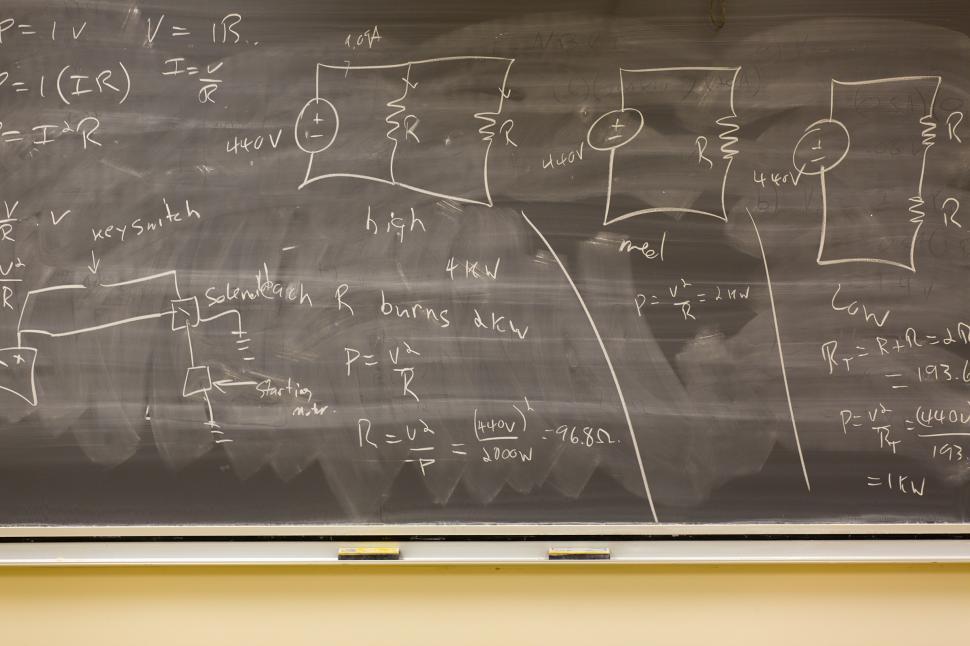 P = IV
V = IR
P = I (IR)
I = V/R
P = I²R
V/R · V
V²/R
key switch
Starting
motor
440V
R
R
high
4KW
each R burns 2KW
P = V²/R
R = V²/P = (440V)²/2000W = 96.8Ω
440V
R
med
P = V²/R = 2KW
440V
R
R
Low
R_T = R+R = 2R
= 193.6
P = V²/R_T = (440V
193.
= 1KW